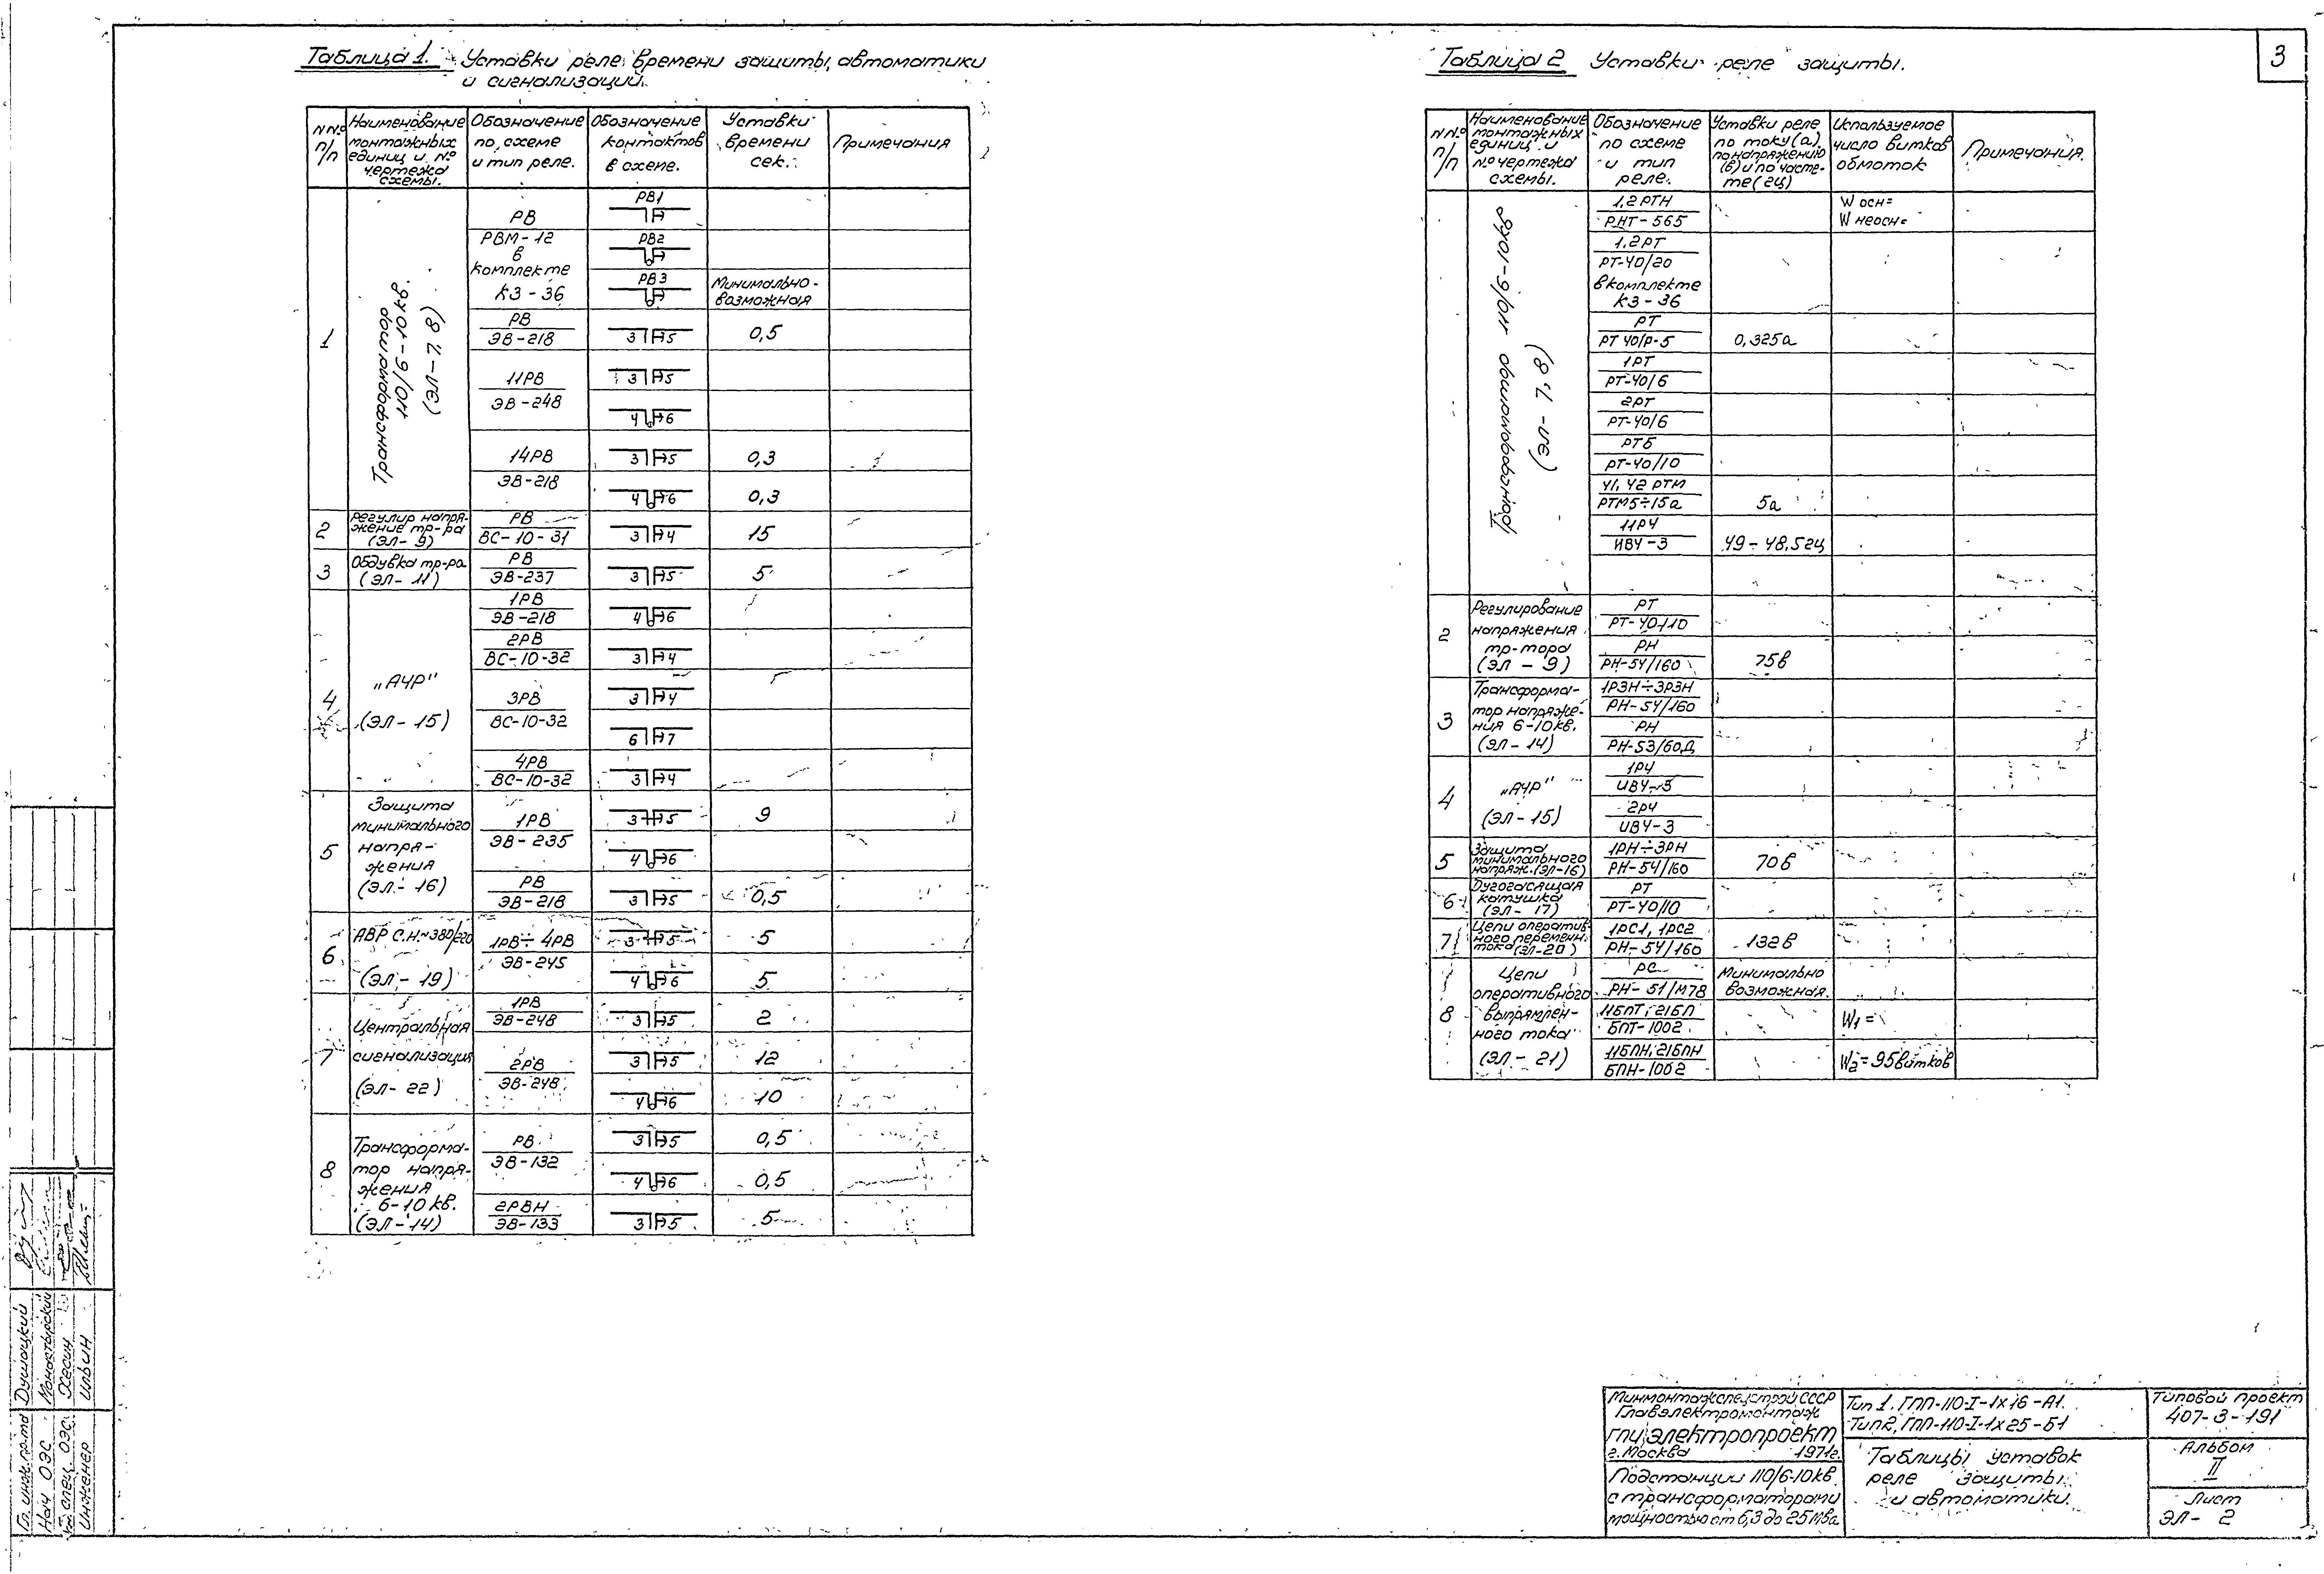 3
Таблица 1. Уставки реле времени защиты, автоматики
и сигнализаций.
NN° п/п
Наименование монтажных единиц и N° чертежа схемы.
Обозначение по схеме и тип реле.
Обозначение контактов в схеме.
Уставки времени сек.
Примечания
1
Трансформатор
110/6-10кв.
(ЭЛ-7,8)
РВ
РВМ-12
в
комплекте
КЗ-36
РВ1
РВ2
РВ3
Минимально-
возможная
РВ
ЭВ-218
3 5
0,5
11РВ
ЭВ-248
3 5
4 6
14РВ
ЭВ-218
3 5
0,3
4 6
0,3
2
Регулир напря-
жение тр-ра
(ЭЛ-9)
РВ
ВС-10-31
3 4
15
3
Обдувка тр-ра
(ЭЛ-11)
РВ
ЭВ-237
3 5
5
4
„АЧР"
(ЭЛ-15)
1РВ
ЭВ-218
4 6
2РВ
ВС-10-32
3 4
3РВ
ВС-10-32
3 4
6 7
4РВ
ВС-10-32
3 4
5
Защита
минимального
напря-
жения
(ЭЛ-16)
1РВ
ЭВ-235
3 5
9
4 6
РВ
ЭВ-218
3 5
0,5
6
АВР С.Н.~380/220
(ЭЛ-19)
1РВ÷4РВ
ЭВ-245
3 5
5
4 6
5
7
Центральная
сигнализация
(ЭЛ-22)
1РВ
ЭВ-248
3 5
2
2РВ
ЭВ-248
3 5
12
4 6
10
8
Трансформа-
тор напря-
жения
6-10 кв.
(ЭЛ-14)
РВ
ЭВ-132
3 5
0,5
4 6
0,5
2РВН
ЭВ-133
3 5
5
Таблица 2 Уставки реле защиты.
NN° п/п
Наименование монтажных единиц и N° чертежа схемы.
Обозначение по схеме и тип реле.
Уставки реле по току(а), по напряжению (в) и по часто-те(гц)
Используемое число витков обмоток
Примечания.
Трансформатор 110/6-10кв
(ЭЛ-7,8)
1,2РТН
РНТ-565
W осн=
W неосн=
1,2РТ
РТ-40/20
в комплекте
КЗ-36
РТ
РТ 40/Р-5
0,325а
1РТ
РТ-40/6
2РТ
РТ-40/6
РТБ
РТ-40/10
41,42 РТМ
РТМ5÷15а
5а
11РЧ
ИВЧ-3
49-48,5гц
2
Регулирование
напряжения
тр-тора
(ЭЛ-9)
РТ
РТ-40/10
РН
РН-54/160
75в
3
Трансформа-
тор напряже-
ния 6-10кв.
(ЭЛ-14)
1РЗН÷3РЗН
РН-54/160
РН
РН-53/60Д
4
„АЧР"
(ЭЛ-15)
1РЧ
ИВЧ-3
2РЧ
ИВЧ-3
5
Защита
минимального
напряж.(ЭЛ-16)
1РН÷3РН
РН-54/160
70в
6
Дугогасящая
катушка
(ЭЛ-17)
РТ
РТ-40/10
7
Цепи оператив-
ного переменн.
тока (ЭЛ-20)
1РС1, 1РС2
РН-54/160
132в
8
Цепи
оперативного
выпрямлен-
ного тока
(ЭЛ-21)
РС
РН-51/М78
Минимально
возможная.
11БПТ, 21БП
БПТ-1002
W1 =
11БПН, 21БПН
БПН-1002
W2 = 95витков
Гл. инж. пр-та Душацкий
Нач ОЭС Монастырский
Гл. спец. ОЭС Хесин
Инженер Ильин
Минмонтажспецстрой СССР
Главэлектромонтаж
ГПИ Электропроект
г. Москва 1971г.
Подстанции 110/6-10кв
с трансформаторами
мощностью от 6,3 до 25 Мва
Тип 1. ГПП-110-I-1х16-А1.
Тип2, ГПП-110-I-1х25-Б1
Таблицы уставок
реле защиты
и автоматики.
Типовой проект
407-3-191
Альбом
II
Лист
ЭЛ-2